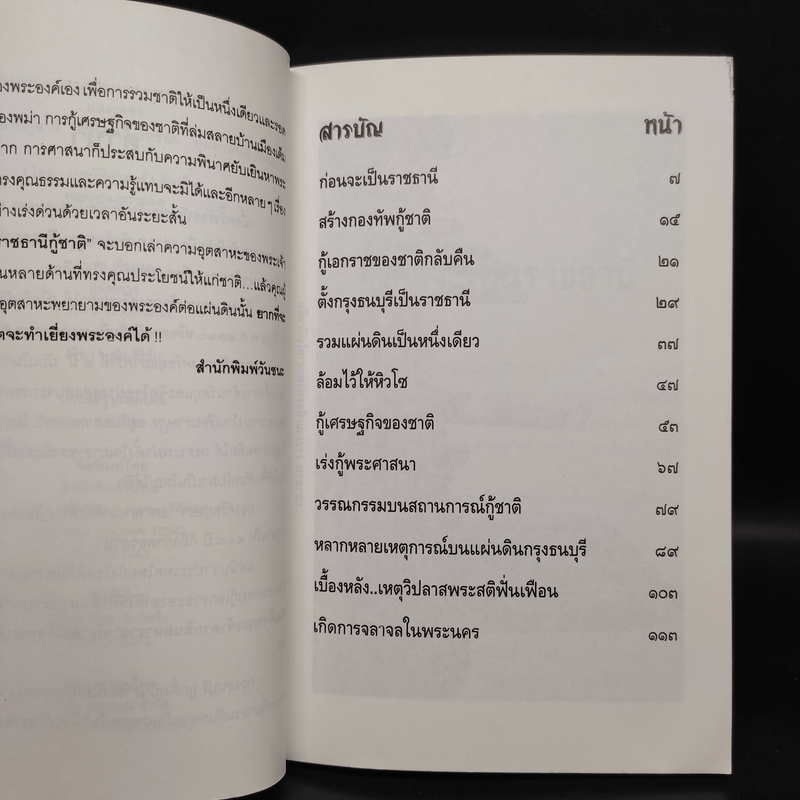 งพระองค์เอง เพื่อการรวมชาติให้เป็นหนึ่งเดียวและรอด
องพม่า การกู้เศรษฐกิจของชาติที่ล่มสลายบ้านเมืองเต็ม
าก การศาสนาก็ประสบกับความพินาศยับเยินหาพระ
รงคุณธรรมและความรู้แทบจะมิได้และอีกหลายๆเรื่อง
ย่างเร่งด่วนด้วยเวลาอันระยะสั้น
ราชธานีกู้ชาติ" จะบอกเล่าความอุตสาหะของพระเจ้า
นหลายด้านที่ทรงคุณประโยชน์ให้แก่ชาติ...แล้วคุณรู้
อุตสาหะพยายามของพระองค์ต่อแผ่นดินนั้น ยากที่จะ
ดจะทำเยี่ยงพระองค์ได้ !!
สำนักพิมพ์วันชนะ
สารบัญ หน้า
ก่อนจะเป็นราชธานี ๗
สร้างกองทัพกู้ชาติ ๑๕
กู้เอกราชของชาติกลับคืน ๒๑
ตั้งกรุงธนบุรีเป็นราชธานี ๒๙
รวมแผ่นดินเป็นหนึ่งเดียว ๓๗
ล้อมไว้ให้หิวโซ ๔๗
กู้เศรษฐกิจของชาติ ๕๓
เร่งกู้พระศาสนา ๖๗
วรรณกรรมบนสถานการณ์กู้ชาติ ๗๙
หลากหลายเหตุการณ์บนแผ่นดินกรุงธนบุรี ๘๙
เบื้องหลัง..เหตุวิปลาสพระสติฟั่นเฟือน ๑๐๓
เกิดการจลาจลในพระนคร ๑๑๓